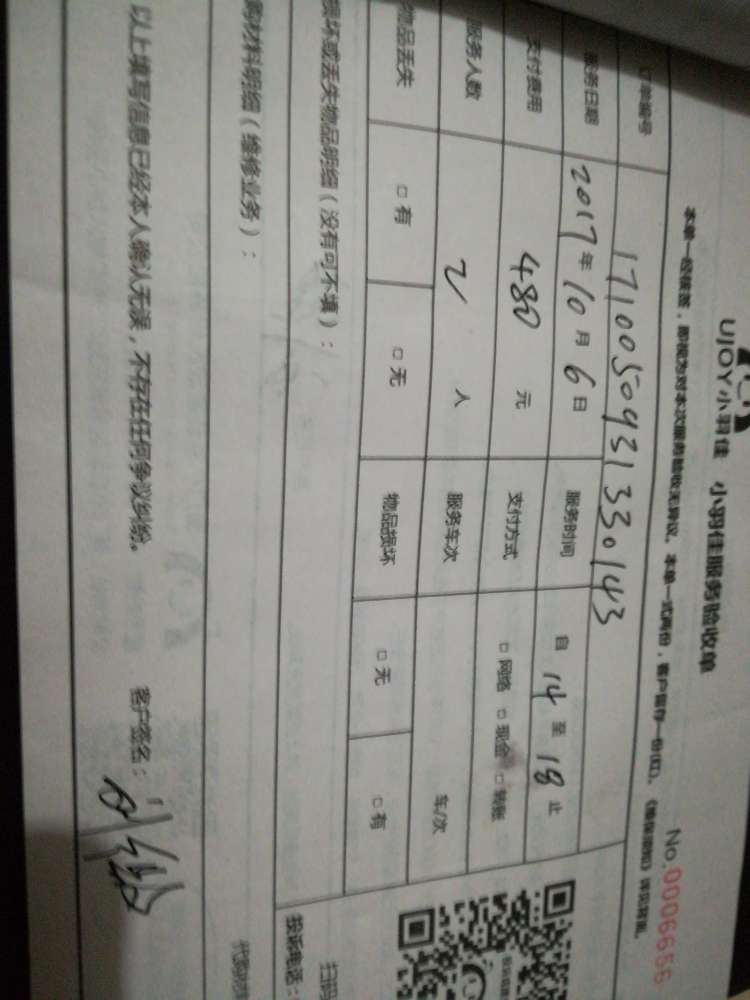 UJOY小羽佳 小羽佳服务验收单
No.0006656
本单一经接签，即视为对本次服务验收无异议。本单一式两份，客户留存一份(红)，
订单编号 171005093133330143
服务日期 2017年10月6日 服务时间 自14至18止
支付费用 480元 支付方式 □网络 □现金 □转账
服务人数 2人 服务车次 车/次
物品丢失 □有 □无 物品损坏 □无 □有
损坏或丢失物品明细（没有可不填）：
购材料明细（维修业务）：
以上填写信息已经本人确认无误，不存在任何争议纠纷。 客户签名：
扫码
投诉电话：